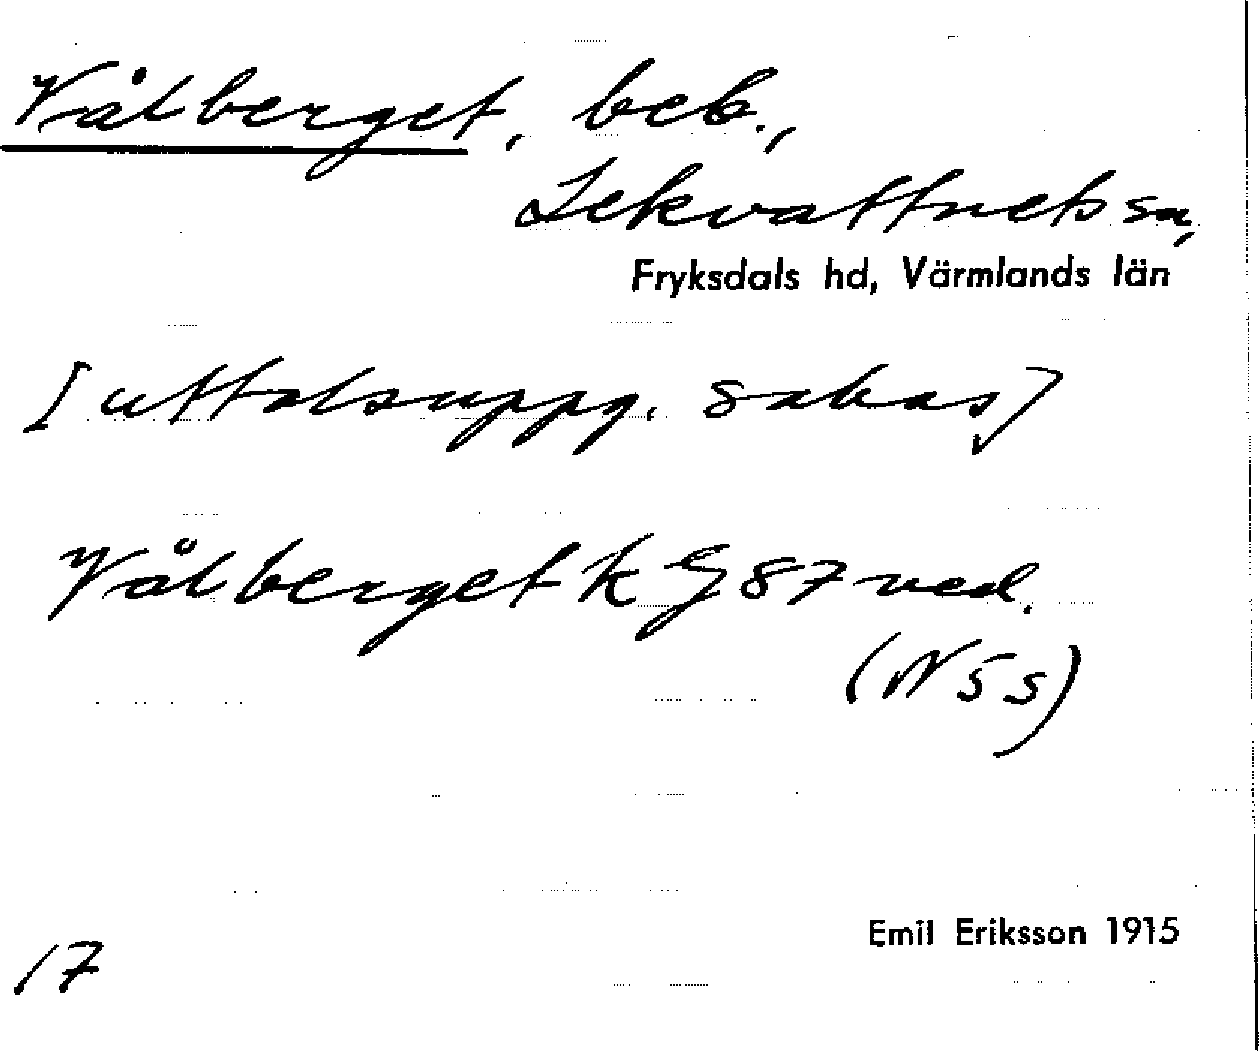 Vålberget, beb.,
Lekvattnets sn,
Fryksdals hd, Värmlands län
[uttalsuppg. saknas]
Vålberget k G 87 ned.
(N 5 s)
Emil Eriksson 1915
17